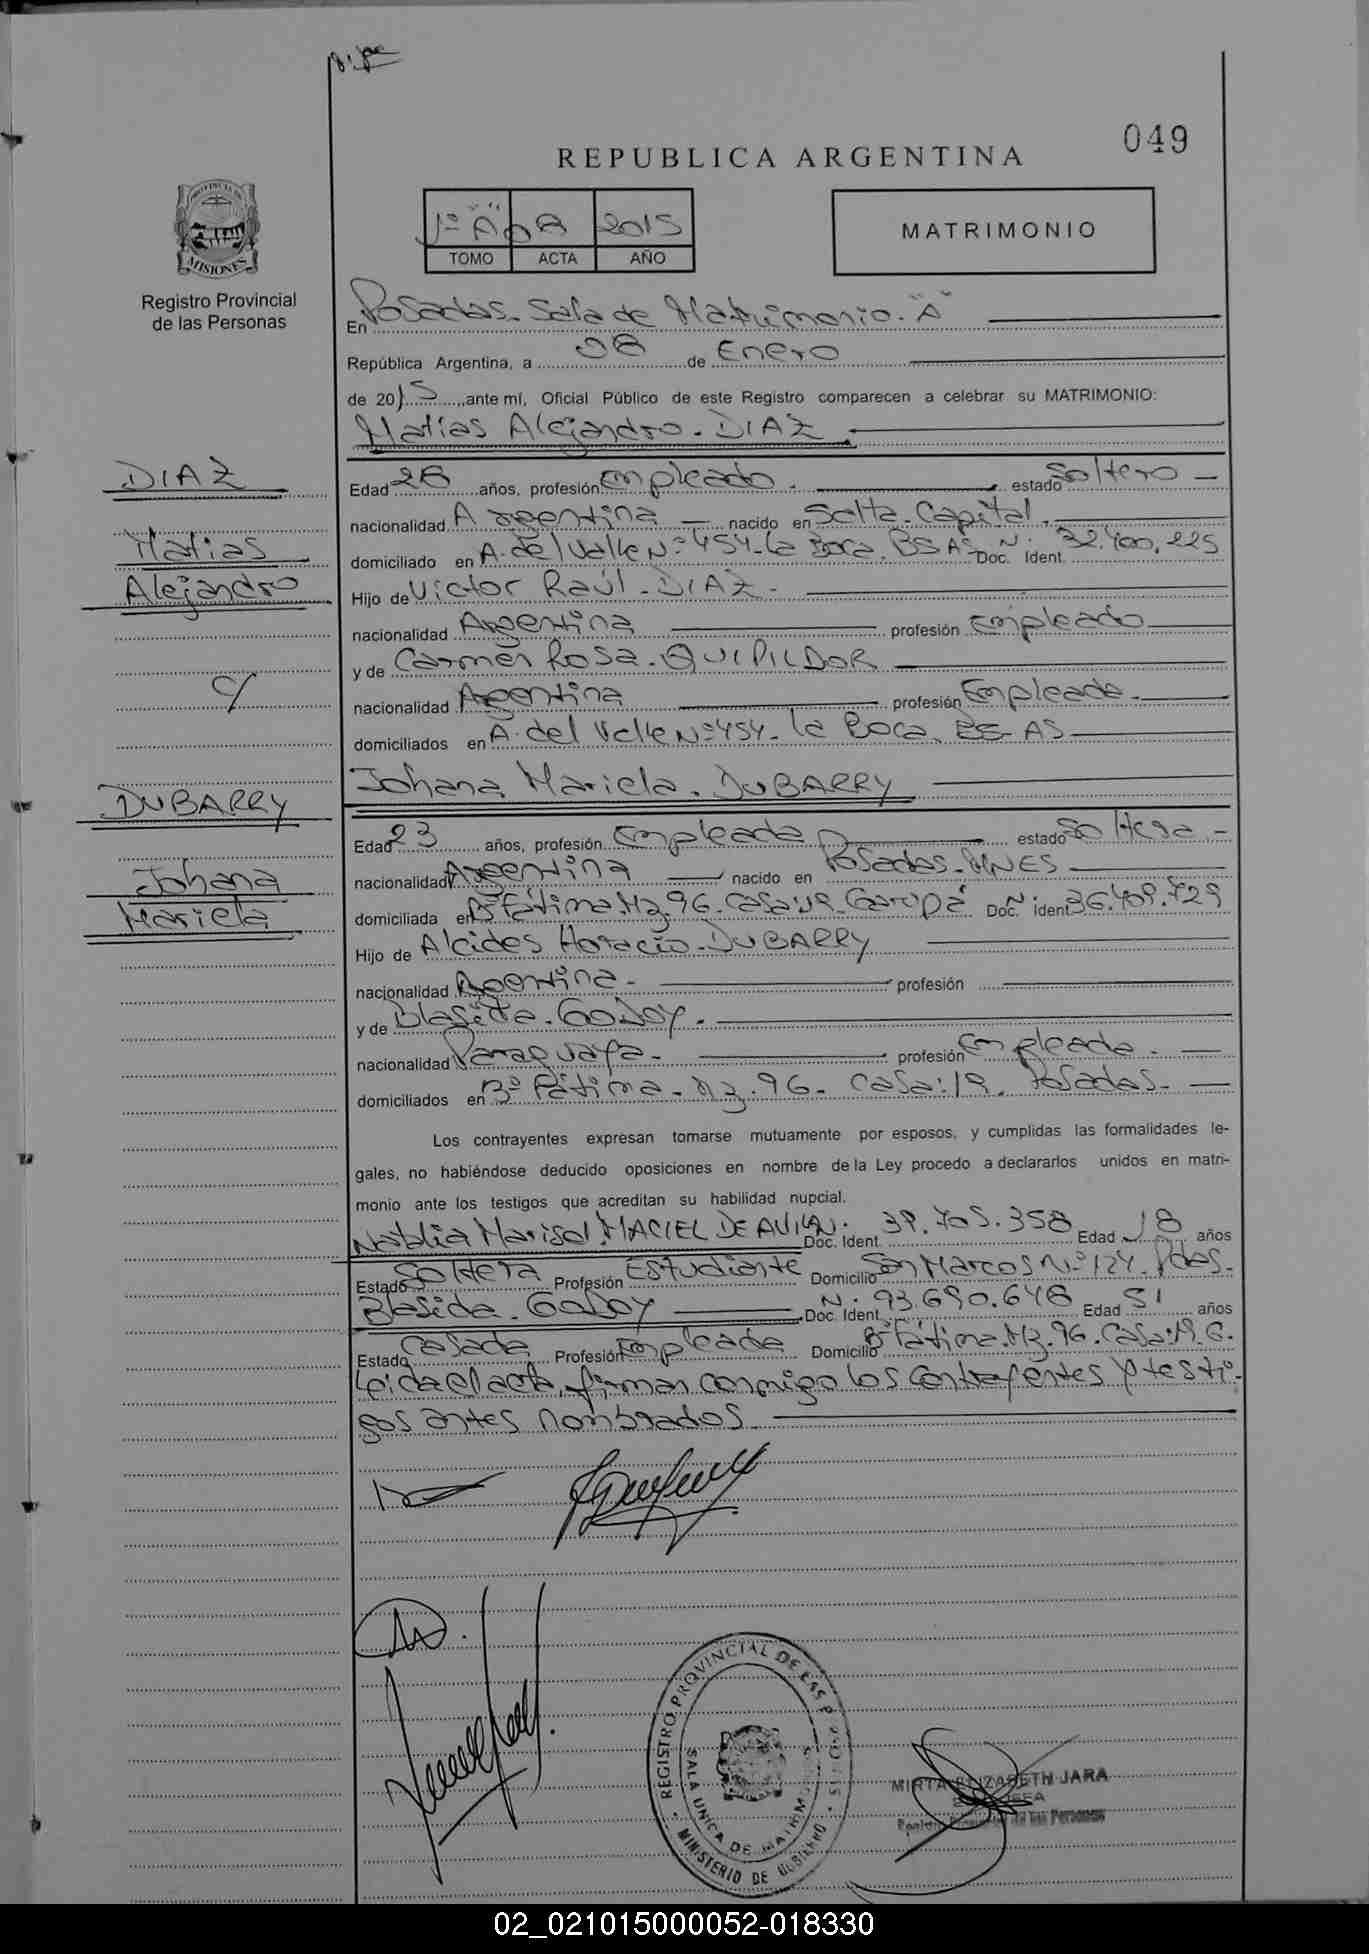 049
REPUBLICA ARGENTINA
1º "A" 08 2015
TOMO ACTA AÑO
MATRIMONIO
PROVINCIA DE
MISIONES
Registro Provincial
de las Personas
En Posadas. Sala de Matrimonio. "A"
República Argentina, a 08 de Enero
de 2015, ante mí, Oficial Público de este Registro comparecen a celebrar su MATRIMONIO:
Matías Alejandro. DIAZ
DIAZ
Matías
Alejandro
c/
DUBARRY
Johana
Mariela
Edad 26 años, profesión Empleado. estado Soltero
nacionalidad Argentina nacido en Salta. Capital.
domiciliado en A. del Valle Nº 454. la Boca. BS AS Doc. Ident. Nº 32.400.225
Hijo de Víctor Raúl. DIAZ.
nacionalidad Argentina profesión Empleado
y de Carmen Rosa. QUIPILDOR
nacionalidad Argentina profesión Empleada.
domiciliados en A. del Valle Nº 454. la Boca. BS AS
Johana Mariela. DUBARRY
Edad 23 años, profesión Empleada estado Soltera
nacionalidad Argentina nacido en Posadas. MNES
domiciliada en Bº Fátima. Mz. 96. Casa: 19. Garupá Doc. ident. Nº 36.409.729
Hijo de Alcides Horacio. DUBARRY
nacionalidad Argentina. profesión
y de Blasida. GODOY.
nacionalidad Paraguaya. profesión Empleada.
domiciliados en Bº Fátima. Mz. 96. Casa: 19. Posadas.
Los contrayentes expresan tomarse mutuamente por esposos, y cumplidas las formalidades le-
gales, no habiéndose deducido oposiciones en nombre de la Ley procedo a declararlos unidos en matri-
monio ante los testigos que acreditan su habilidad nupcial.
Natalia Marisol. MACIEL DE AVILA. Doc. Ident. 39.705.358 Edad 18 años
Estado Soltera Profesión Estudiante Domicilio San Marcos Nº 124. Pdas.
Blasida. GODOY Doc. Ident. Nº 93.690.648 Edad 51 años
Estado Casada Profesión Empleada Domicilio Bº Fátima. Mz. 96. Casa: 19. G.
Leída el acta, firman conmigo los contrayentes y testi-
gos antes nombrados.
REGISTRO PROVINCIAL DE LAS PERSONAS
SALA UNICA DE MATRIMONIOS
MINISTERIO DE GOBIERNO
MIRTA ELIZABETH JARA
de las Personas
02_021015000052-018330